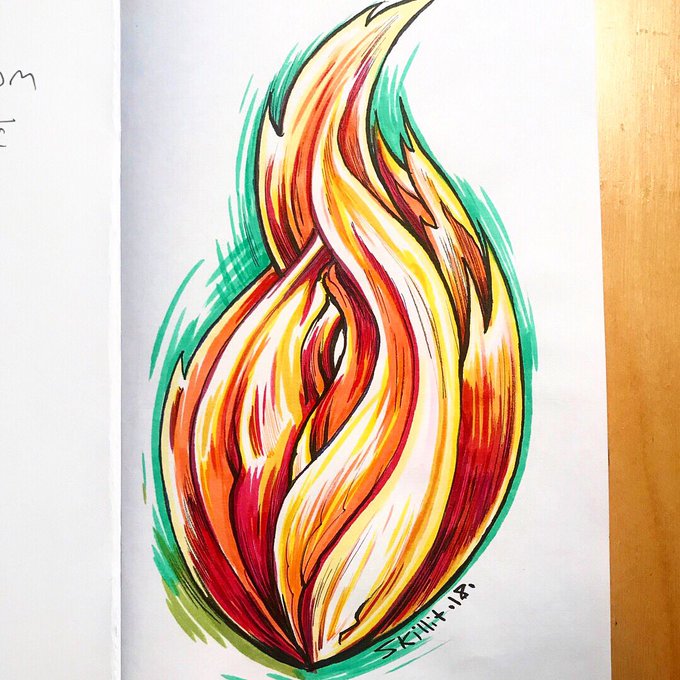 om
Skillit.18.